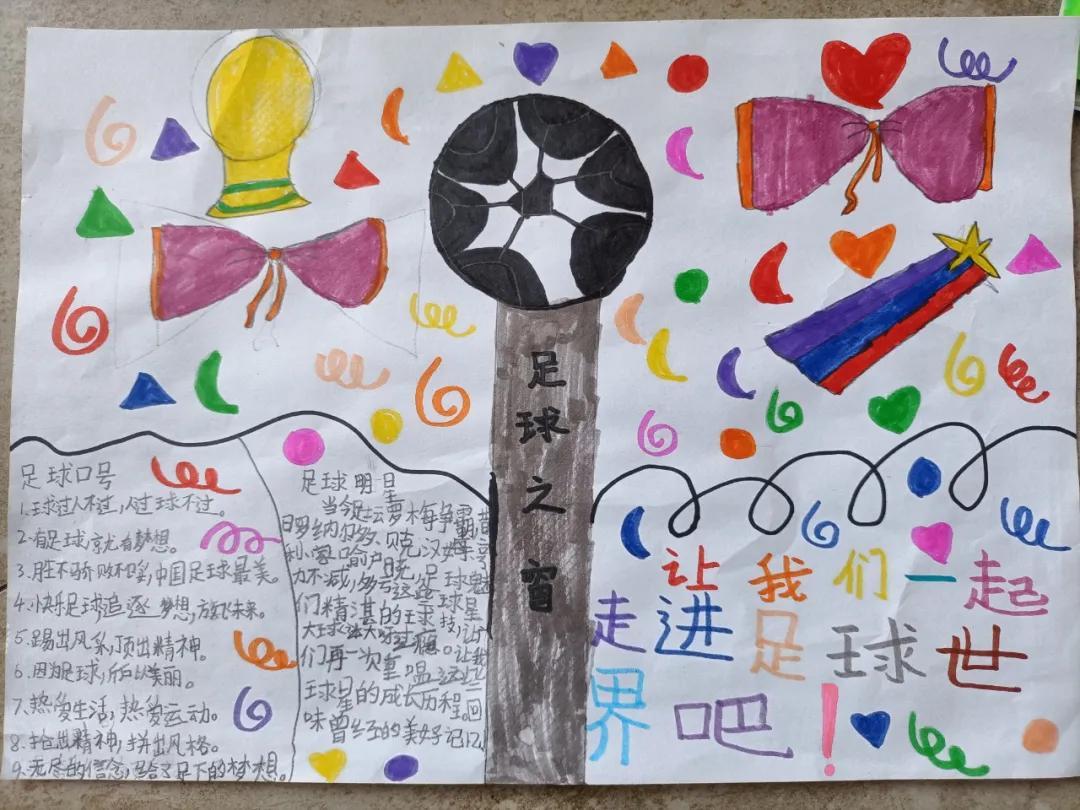 足球之窗
足球口号
1.球过人不过,人过球不过。
2.有足球,就有梦想。
3.胜不骄,败不馁,中国足球最美。
4.快乐足球,追逐梦想,放飞未来。
5.踢出风彩,顶出精神。
6.因为足球,所以美丽。
7.热爱生活,热爱运动。
8.抢出精神,拼出风格。
9.无尽的信念,尽给了足下的梦想。
足球明星
当今坛
罗纳尔多 贝克汉姆
力不减,多亏这些足球魅
们精湛的球技,
们再一次重温这些
球星的成长历程,回
味曾经的美好记忆
让我们一起
走进足球世
界吧!